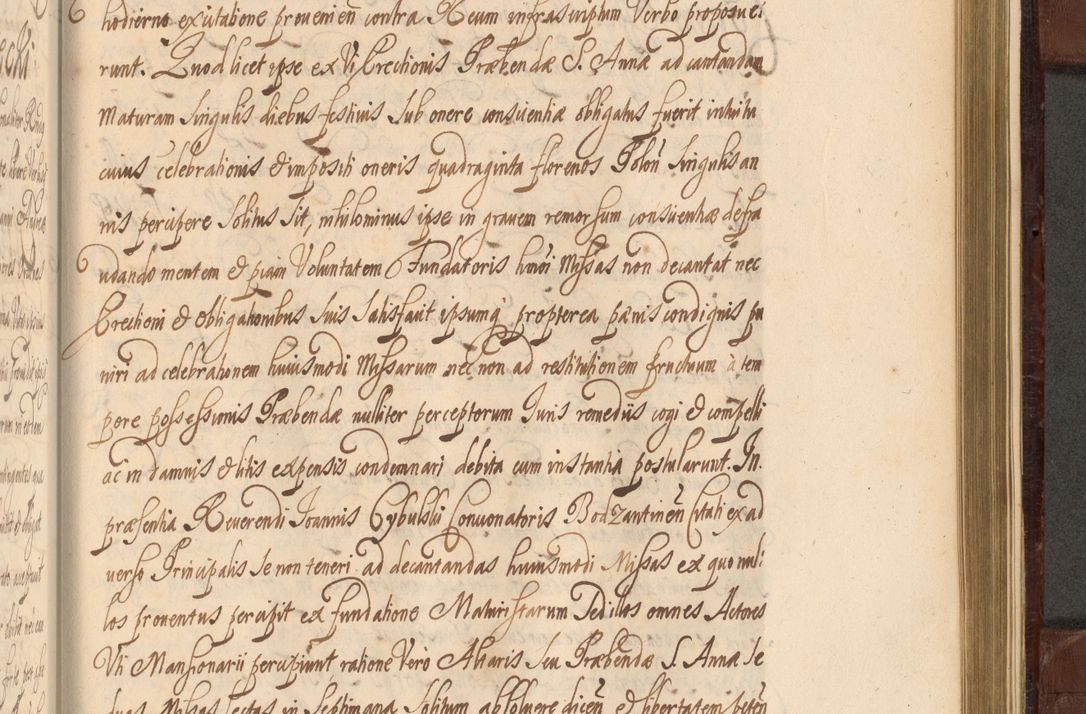 hodierno ex citatione provenien̄ contra Reum infrascriptum Verbo proposue:
runt. Quod licet ipse ex Vi Erectionis Præbendæ S. Annæ ad cantandam
Maturam Singulis diebus festivis Sub onere conscientiæ obligatus fuerit intuitu
cuius celebrationis & impositi oneris quadraginta florenos Polon̄ Singulis an
nis percipere Solitus Sit, nihilominus ipse in gravem remorsum conscientiæ defra
udando mentem & piam Voluntatem Fundatoris huiōi Missas non decantat nec
Erectioni & obligationibus Suis Satisfacit ipsumq́ propterea pænis condignis pu
niri ad celebrationem huiusmodi Missarum nec non ad restitutionem fructuum à tem
pore possessionis Præbendæ nulliter perceptorum Juris remediis cogi & compelli
ac in damnis & litis expensis condemnari debita cum instantia postularunt. In.
præsentia Reverendi Joannis Cybulski Convonatoris Bodzantinen̄ Citati ex ad
verso Principalis Se non teneri ad decantandas huiusmodi Missas ex quo nul:
los proventus percipit ex fundatione Maturistarum Sed illos omnes Actores
Uti Mansionarii percipiunt, ratione Vero Altaris Seu Præbendæ S. Annæ Se
duas Missas lectas in Septimana Solitum absolvere dicen̄ & libertatem peten̄